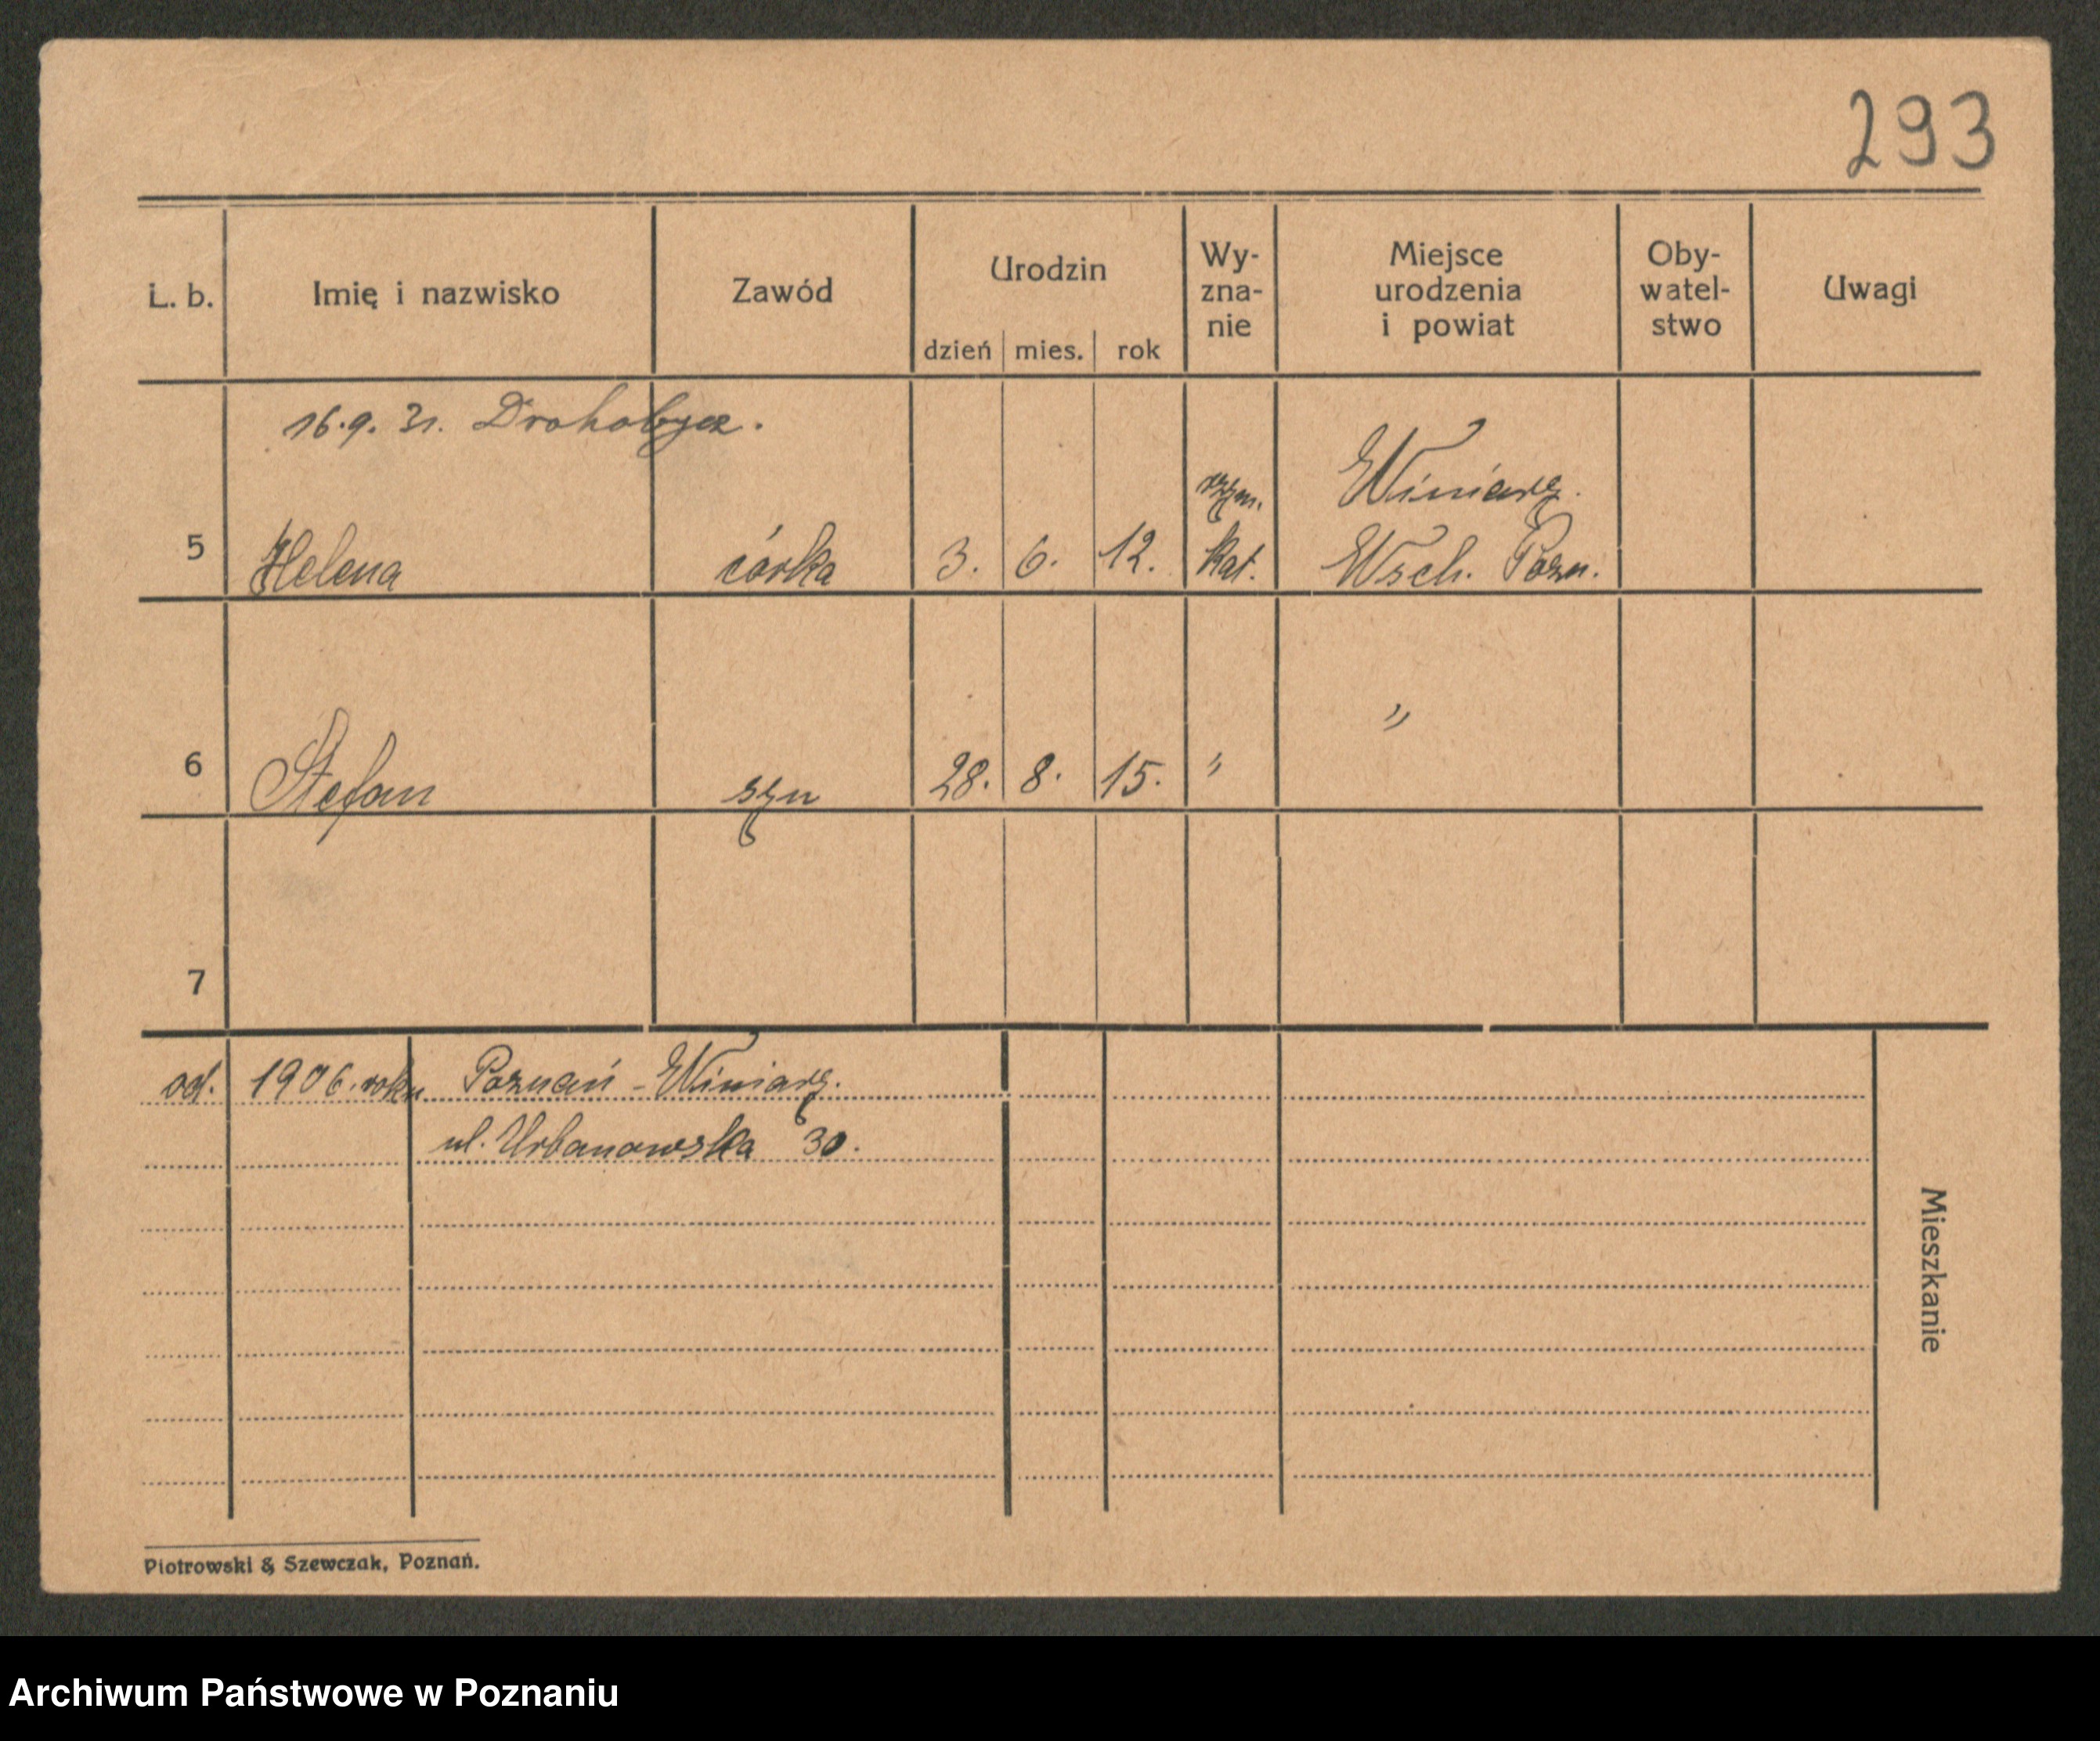 293
L. b. Imię i nazwisko Zawód Urodzin Wy- zna- nie Miejsce urodzenia i powiat Oby- watel- stwo Uwagi
dzień mies. rok
16.9.31. Drohobycz.
5 Helena córka 3. 6. 12. rzym. kat. Winiary. Wsch. Pozn.
6 Stefan syn 28. 8. 15. " "
7
od. 1906. roku Poznań - Winiary.
ul. Urbanowska 30.
Mieszkanie
Piotrowski & Szewczak, Poznań.
Archiwum Państwowe w Poznaniu